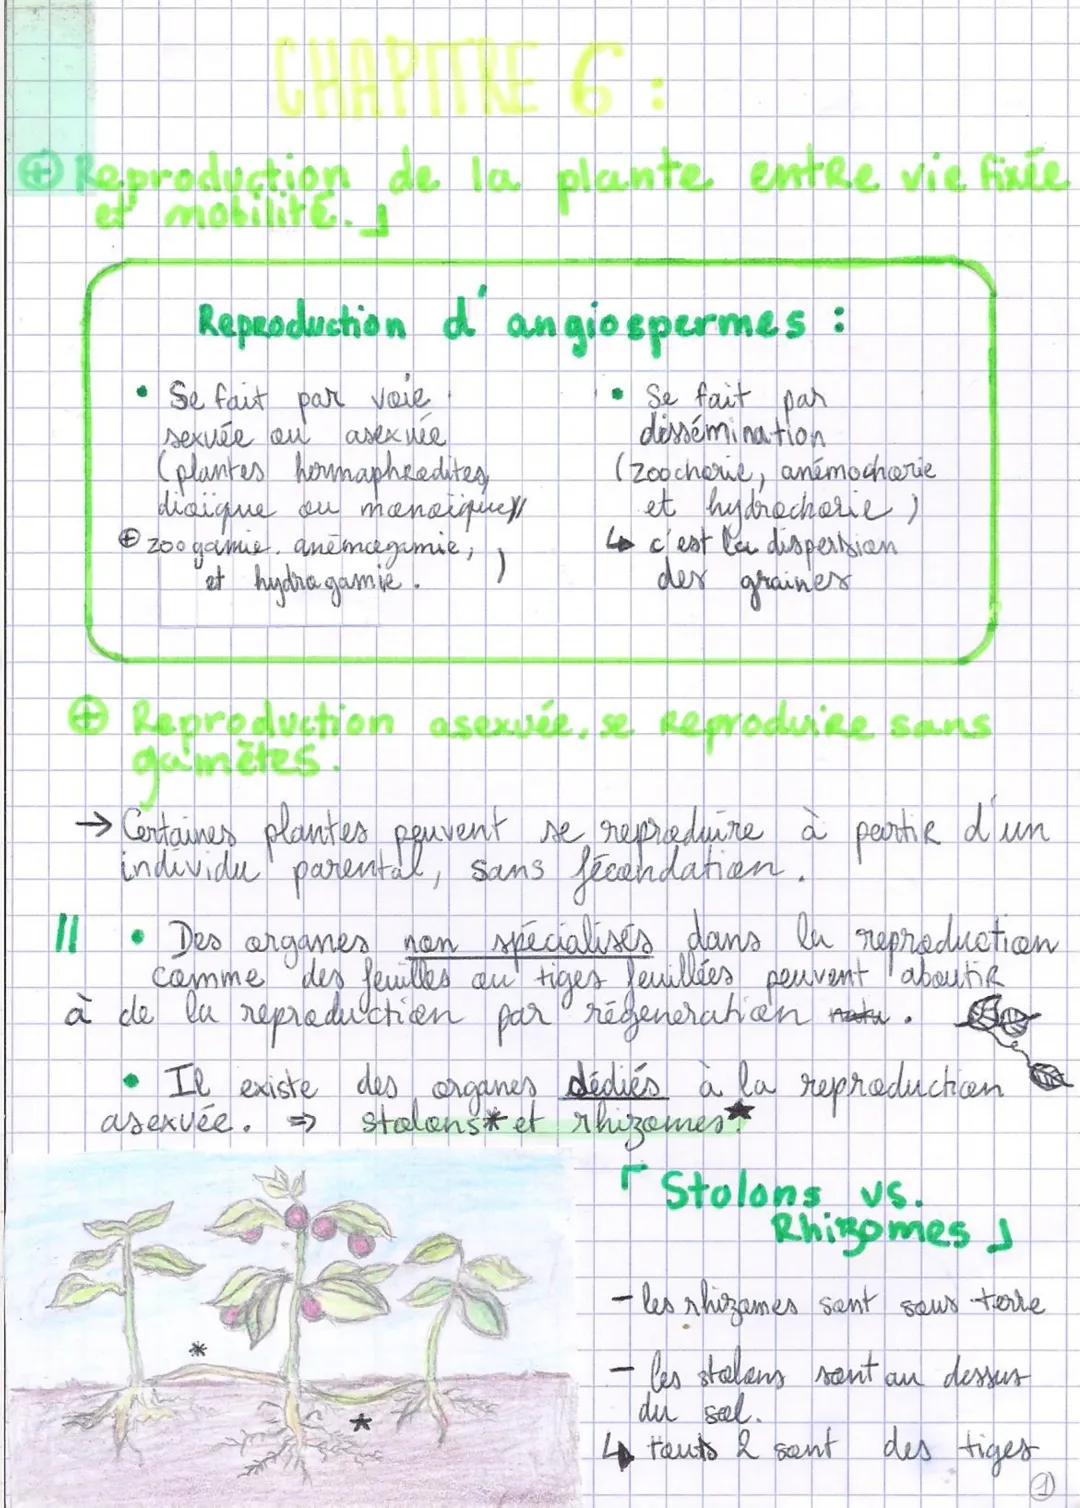 CHAPITRE 6 :
⊕ Reproduction de la plante entre vie fixée
et mobilité. 」
Reproduction d'angiospermes :
• Se fait par voie
sexuée ou asexuée
(plantes hermaphrodites,
dioïque ou monoïque //
⊕ zoogamie, anémogamie,
et hydrogamie. )
• Se fait par
dissémination
(zoochorie, anémochorie
et hydrochorie)
↳ c'est la dispersion
des graines
⊕ Reproduction asexuée, se reproduire sans
gamètes.
→ Certaines plantes peuvent se reproduire à partir d'un
individu parental, sans fécondation.
|| • Des organes non spécialisés dans la reproduction
comme des feuilles ou tiges feuillées peuvent aboutir
à de la reproduction par régéneration.
• Il existe des organes dédiés à la reproduction
asexuée. => stolons* et rhizomes★.
「 Stolons vs.
Rhizomes 」
- les rhizomes sont sous terre
- les stolons sont au dessus
du sol.
↳ touts 2 sont des tiges
*
★
1